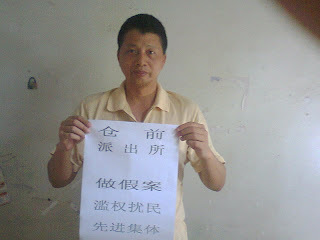 仓前
派出所
做假案
滥权扰民
先进集体